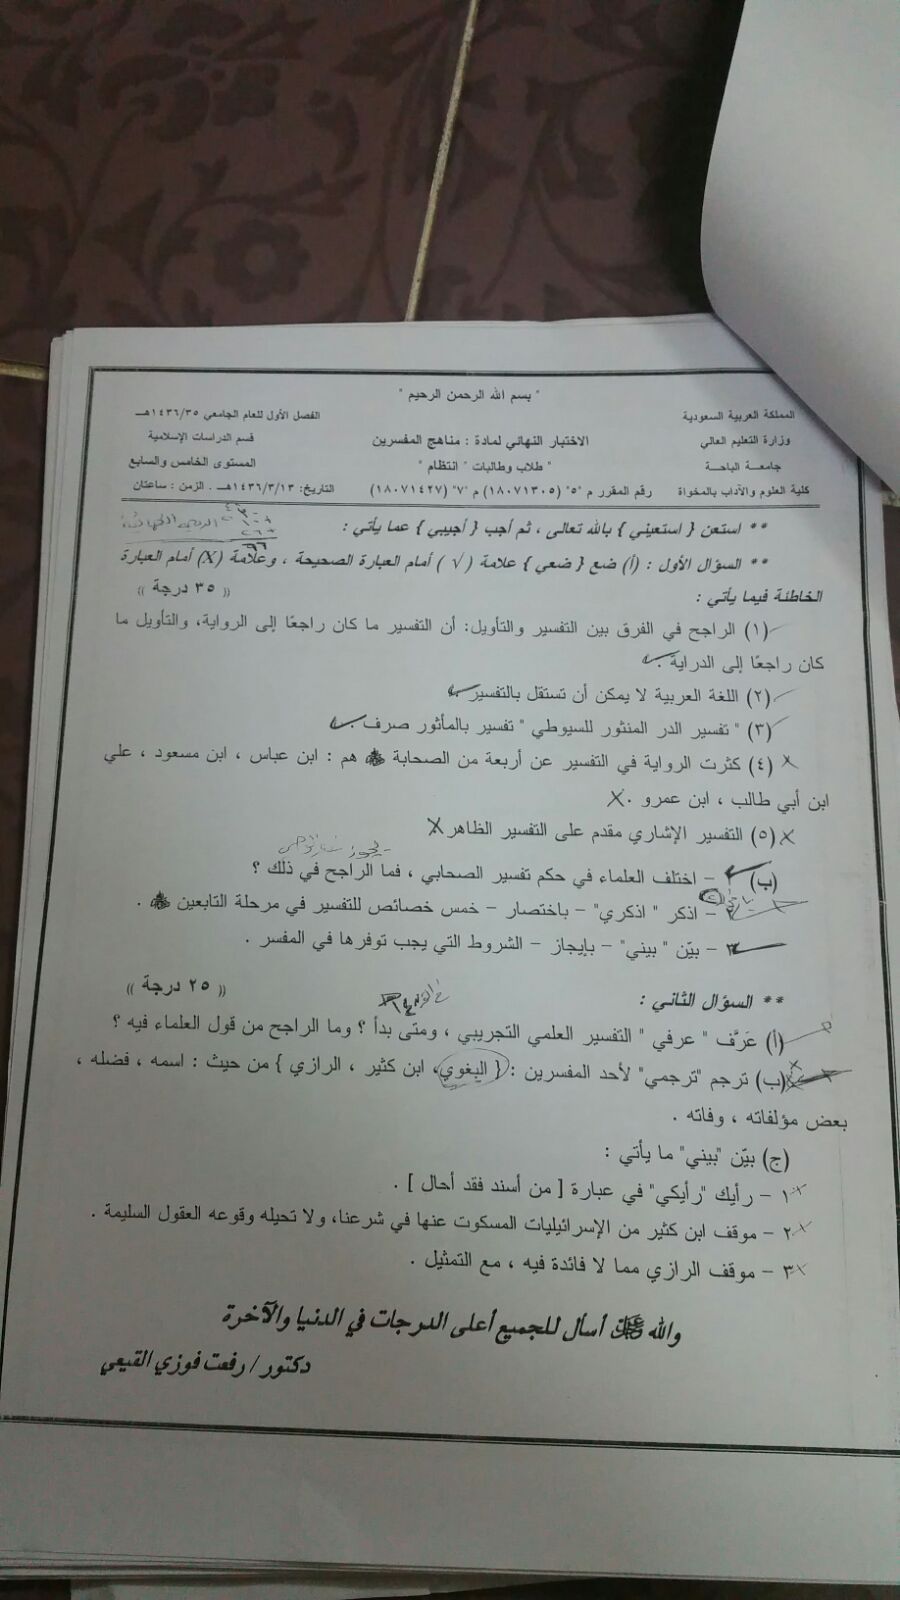 " بسم الله الرحمن الرحيم "
المملكة العربية السعودية
الفصل الأول للعام الجامعي ١٤٣٦/٣٥هـ
وزارة التعليم العالي
الاختبار النهائي لمادة : مناهج المفسرين
قسم الدراسات الإسلامية
جامعة الباحة
" طلاب وطالبات " انتظام "
المستوى الخامس والسابع
كلية العلوم والآداب بالمخواة
رقم المقرر م "٥" (١٨٠٧١٣٠٥) م "٧" (١٨٠٧١٤٢٧)
التاريخ: ١٤٣٦/٣/١٣هـ . الزمن : ساعتان
** استعن { استعيني } بالله تعالى ، ثم أجب { أجيبي } عما يأتي :
** السؤال الأول : (أ) ضع { ضعي } علامة ( √ ) أمام العبارة الصحيحة ، وعلامة (X) أمام العبارة
الخاطئة فيما يأتي : (( ٣٥ درجة ))
(١) الراجح في الفرق بين التفسير والتأويل: أن التفسير ما كان راجعًا إلى الرواية، والتأويل ما
كان راجعًا إلى الدراية .
(٢) اللغة العربية لا يمكن أن تستقل بالتفسير
(٣) " تفسير الدر المنثور للسيوطي " تفسير بالمأثور صرف .
X (٤) كثرت الرواية في التفسير عن أربعة من الصحابة ﷺ هم : ابن عباس ، ابن مسعود ، علي
ابن أبي طالب ، ابن عمرو . X
X (٥) التفسير الإشاري مقدم على التفسير الظاهر X
(ب) ١ - اختلف العلماء في حكم تفسير الصحابي ، فما الراجح في ذلك ؟
٢ - اذكر " اذكري" - باختصار - خمس خصائص للتفسير في مرحلة التابعين .
٣ - بيّن " بيني" - بإيجاز - الشروط التي يجب توفرها في المفسر .
** السؤال الثاني : (( ٢٥ درجة ))
(أ) عَرَّف " عرفي " التفسير العلمي التجريبي ، ومتى بدأ ؟ وما الراجح من قول العلماء فيه ؟
(ب) ترجم "ترجمي" لأحد المفسرين : { البغوي، ابن كثير ، الرازي } من حيث : اسمه ، فضله ،
بعض مؤلفاته ، وفاته .
(ج) بيّن "بيني" ما يأتي :
١ - رأيك "رأيكي" في عبارة [ من أسند فقد أحال ] .
٢ - موقف ابن كثير من الإسرائيليات المسكوت عنها في شرعنا، ولا تحيله وقوعه العقول السليمة .
٣ - موقف الرازي مما لا فائدة فيه ، مع التمثيل .
والله أسأل للجميع أعلى الدرجات في الدنيا والآخرة
دكتور / رفعت فوزي القيعي